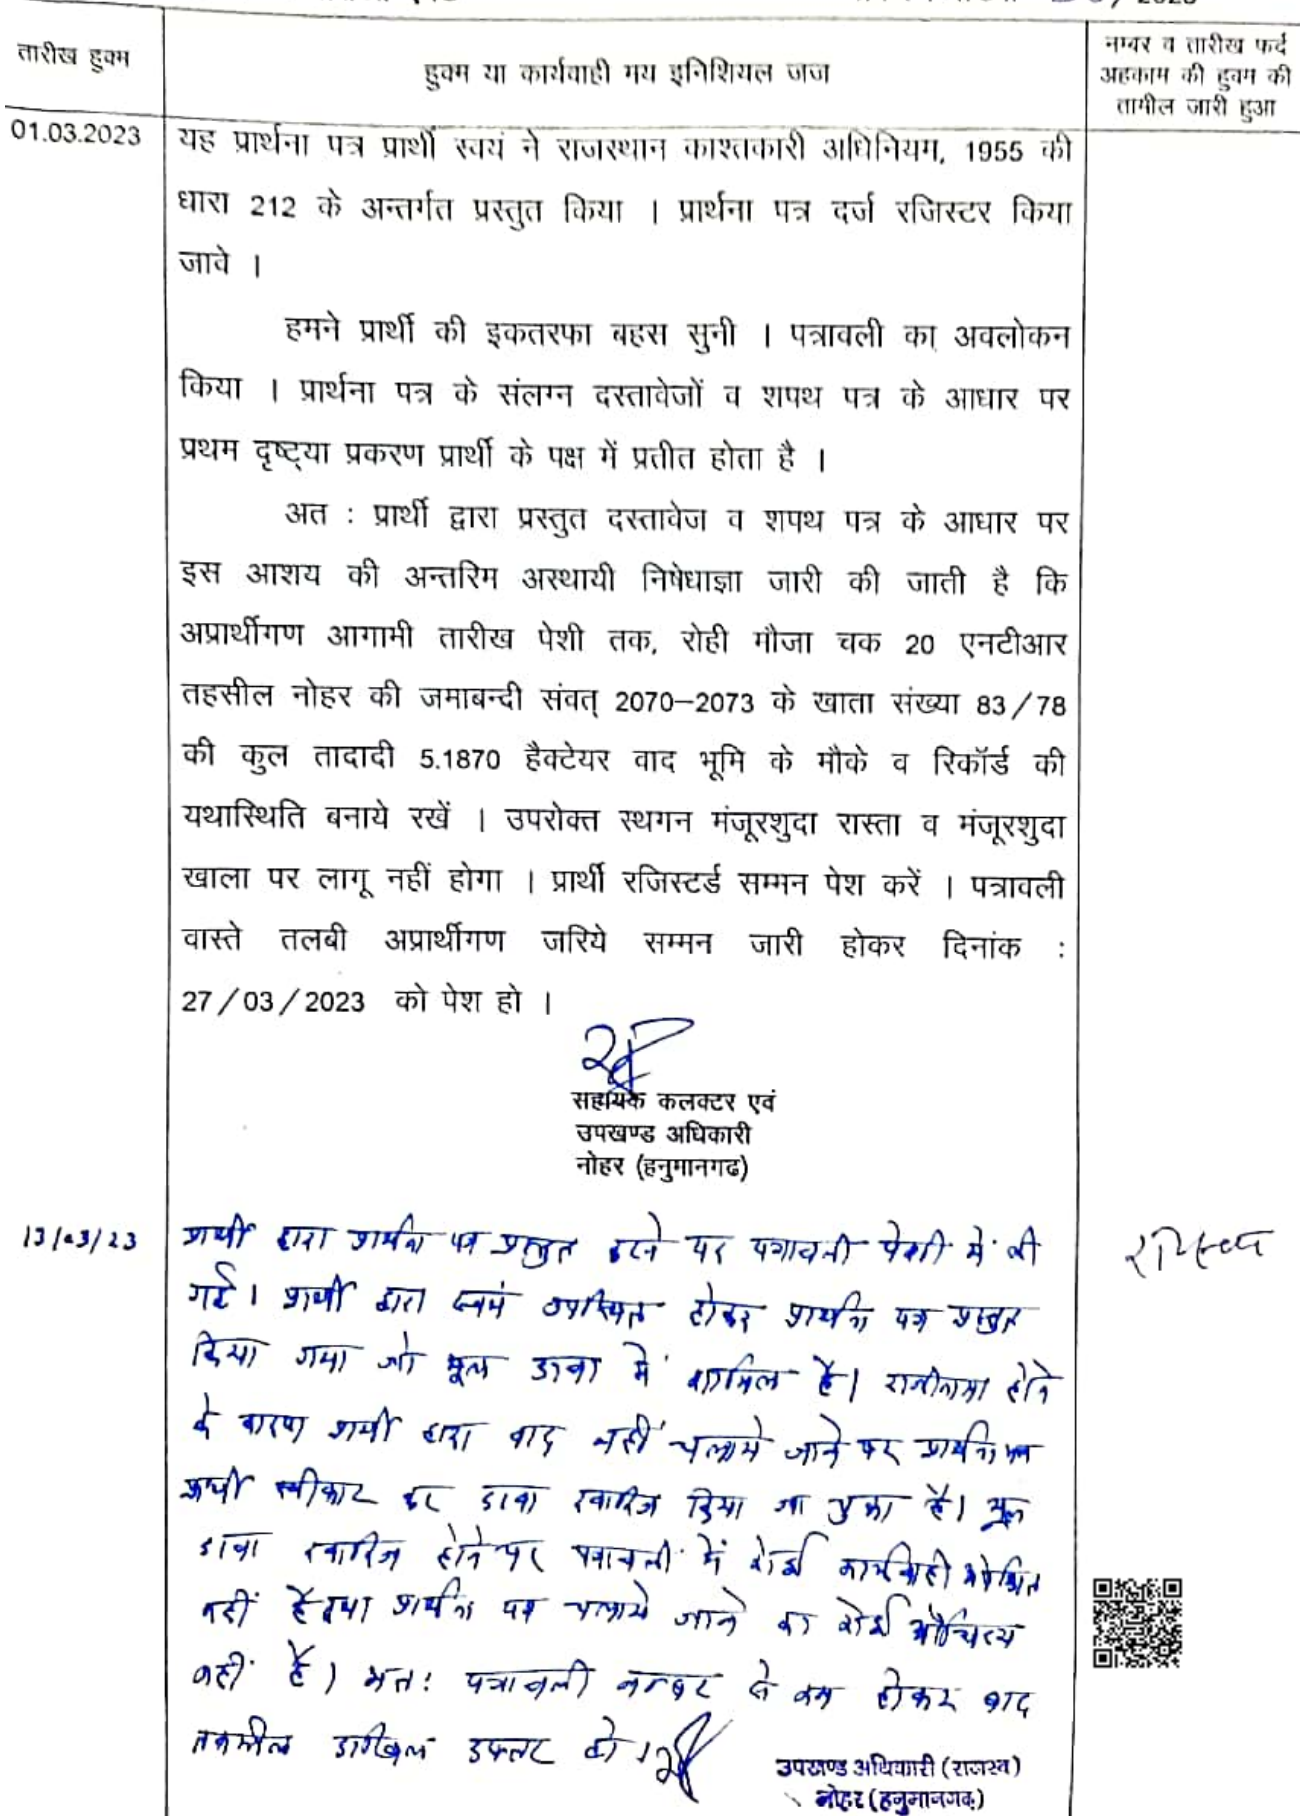 तारीख हुक्म
हुक्म या कार्यवाही मय इनिशियल जज
नम्बर व तारीख फर्द
अहकाम की हुक्म की
तामील जारी हुआ
01.03.2023
यह प्रार्थना पत्र प्रार्थी स्वयं ने राजस्थान काश्तकारी अधिनियम, 1955 की
धारा 212 के अन्तर्गत प्रस्तुत किया । प्रार्थना पत्र दर्ज रजिस्टर किया
जावे ।
हमने प्रार्थी की इकतरफा बहस सुनी । पत्रावली का अवलोकन
किया । प्रार्थना पत्र के संलग्न दस्तावेजों व शपथ पत्र के आधार पर
प्रथम दृष्ट्या प्रकरण प्रार्थी के पक्ष में प्रतीत होता है ।
अत : प्रार्थी द्वारा प्रस्तुत दस्तावेज व शपथ पत्र के आधार पर
इस आशय की अन्तरिम अस्थायी निषेधाज्ञा जारी की जाती है कि
अप्रार्थीगण आगामी तारीख पेशी तक, रोही मौजा चक 20 एनटीआर
तहसील नोहर की जमाबन्दी संवत् 2070–2073 के खाता संख्या 83/78
की कुल तादादी 5.1870 हैक्टेयर वाद भूमि के मौके व रिकॉर्ड की
यथास्थिति बनाये रखें । उपरोक्त स्थगन मंजूरशुदा रास्ता व मंजूरशुदा
खाला पर लागू नहीं होगा । प्रार्थी रजिस्टर्ड सम्मन पेश करें । पत्रावली
वास्ते तलबी अप्रार्थीगण जरिये सम्मन जारी होकर दिनांक :
27/03/2023 को पेश हो ।
सहायक कलक्टर एवं
उपखण्ड अधिकारी
नोहर (हनुमानगढ)
13/03/23
प्रार्थी द्वारा प्रार्थना पत्र प्रस्तुत करने पर पत्रावली पेशी में ली
गई। प्रार्थी द्वारा स्वयं उपस्थित होकर प्रार्थना पत्र प्रस्तुत
किया गया जो मूल दावा में शामिल है। राजीनामा होने
के कारण प्रार्थी द्वारा वाद नहीं चलाये जाने पर प्रार्थना पत्र
प्रार्थी स्वीकार कर दावा खारिज किया जा चुका है। मूल
दावा खारिज होने पर पत्रावली में कोई कार्यवाही अपेक्षित
नहीं है तथा प्रार्थना पत्र चलाये जाने का कोई औचित्य
नहीं है। अतः पत्रावली नम्बर से कम होकर बाद
तकमील दाखिल दफ्तर हो।
उपखण्ड अधिकारी (राजस्व)
नोहर (हनुमानगढ़)